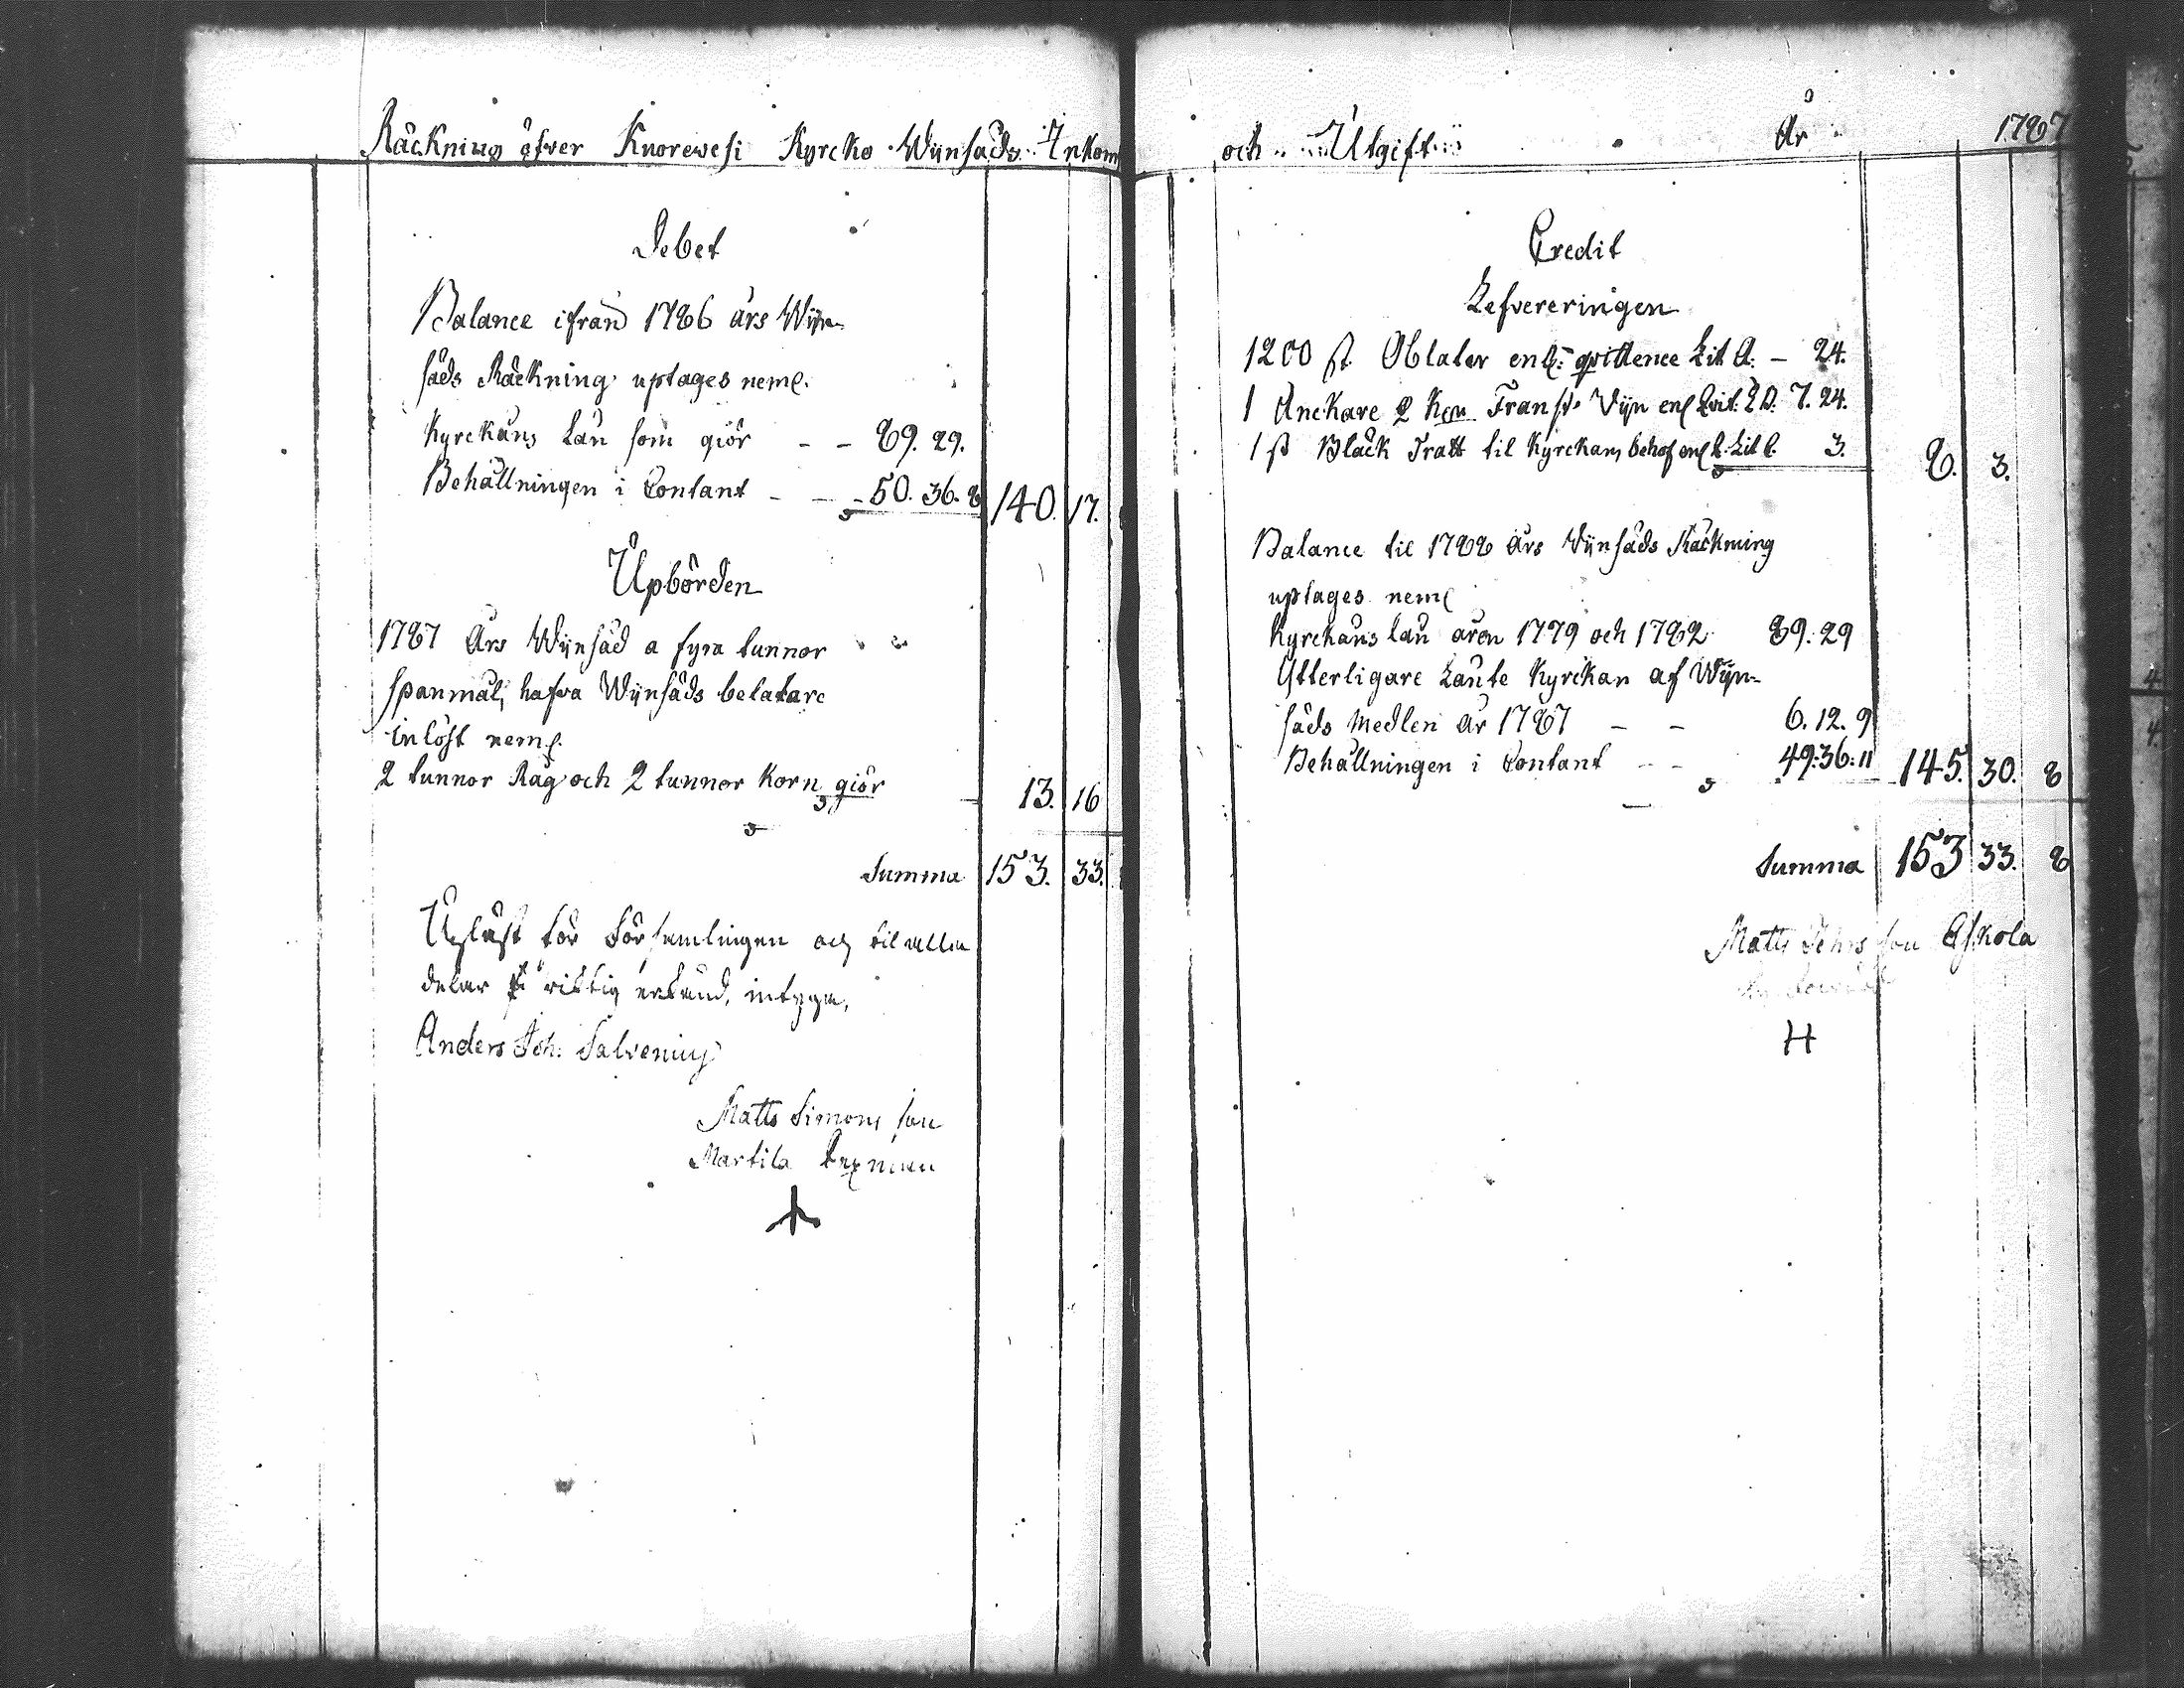 Räckning öfver Knorewesi Kyrcko Wijnsäds Inkom
Debet
Balance ifrån 1786 års Wijn-
säds Räckning uptages neml.
Kyrckans Lån som giör - - 89. 29.
Behållningen i Contant - - - 50. 36. 8 140. 17.
Upbörden
1787 Års Wijnsäd a fyra tunnor
spanmål, hafva Wijnsäds betalare
inlöst neml.
2 tunnor Råg och 2 tunnor Korn giör - 13. 16
Summa 153. 33.
Upläst för Församlingen och til alla
delar för riktig erkänd, intyga,
Anders Joh: Salvenius
Matts Simons son
Martila
och Utgift År 1787
Credit
Lefvereringen
1200 st. Oblater enl: qvittence Lit A. - 24.
1 Anckare 2 Kan Fransk Vijn enl Qvit: L B. 7. 24.
1 st Bläck Tratt til Kyrckans behof enl L. Lit C. 3. 8. 3.
Balance til 1788 Års Vijnsäds Räckning
uptages neml
Kyrckans lån åren 1779 och 1782 89. 29
Ytterligare Lånte Kyrckan af Wijn-
säds Medlen år 1787 - - 6. 12. 9
Behållningen i Contant - - 49: 36: 11 145. 30. 8
Summa 153 33. 8
Matts son Askola
H